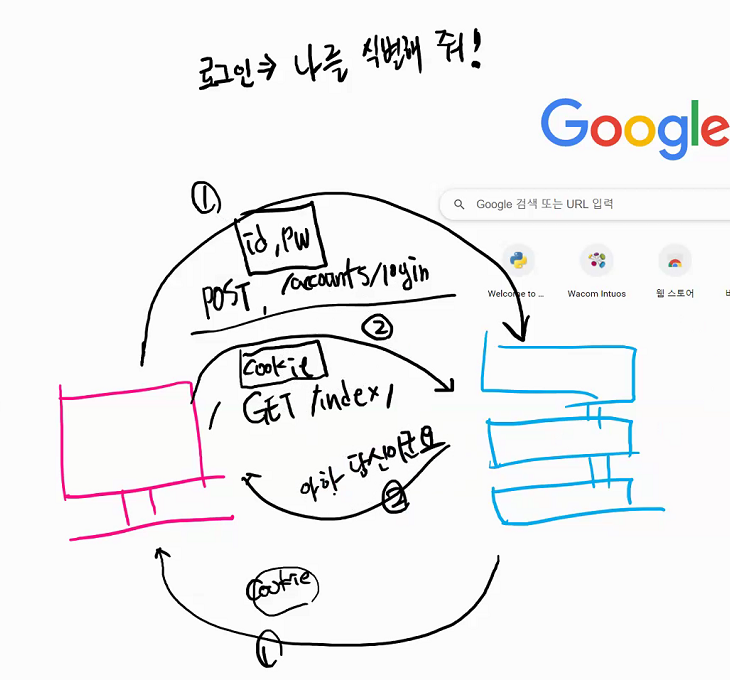 로그인⇒ 나를 식별해 줘!
Google
Google 검색 또는 URL 입력
Welcome to ...
Wacom Intuos
웹 스토어
①
id, PW
POST, /accounts/login
②
cookie
GET /index/
아하 당신이군요
②
cookie
①